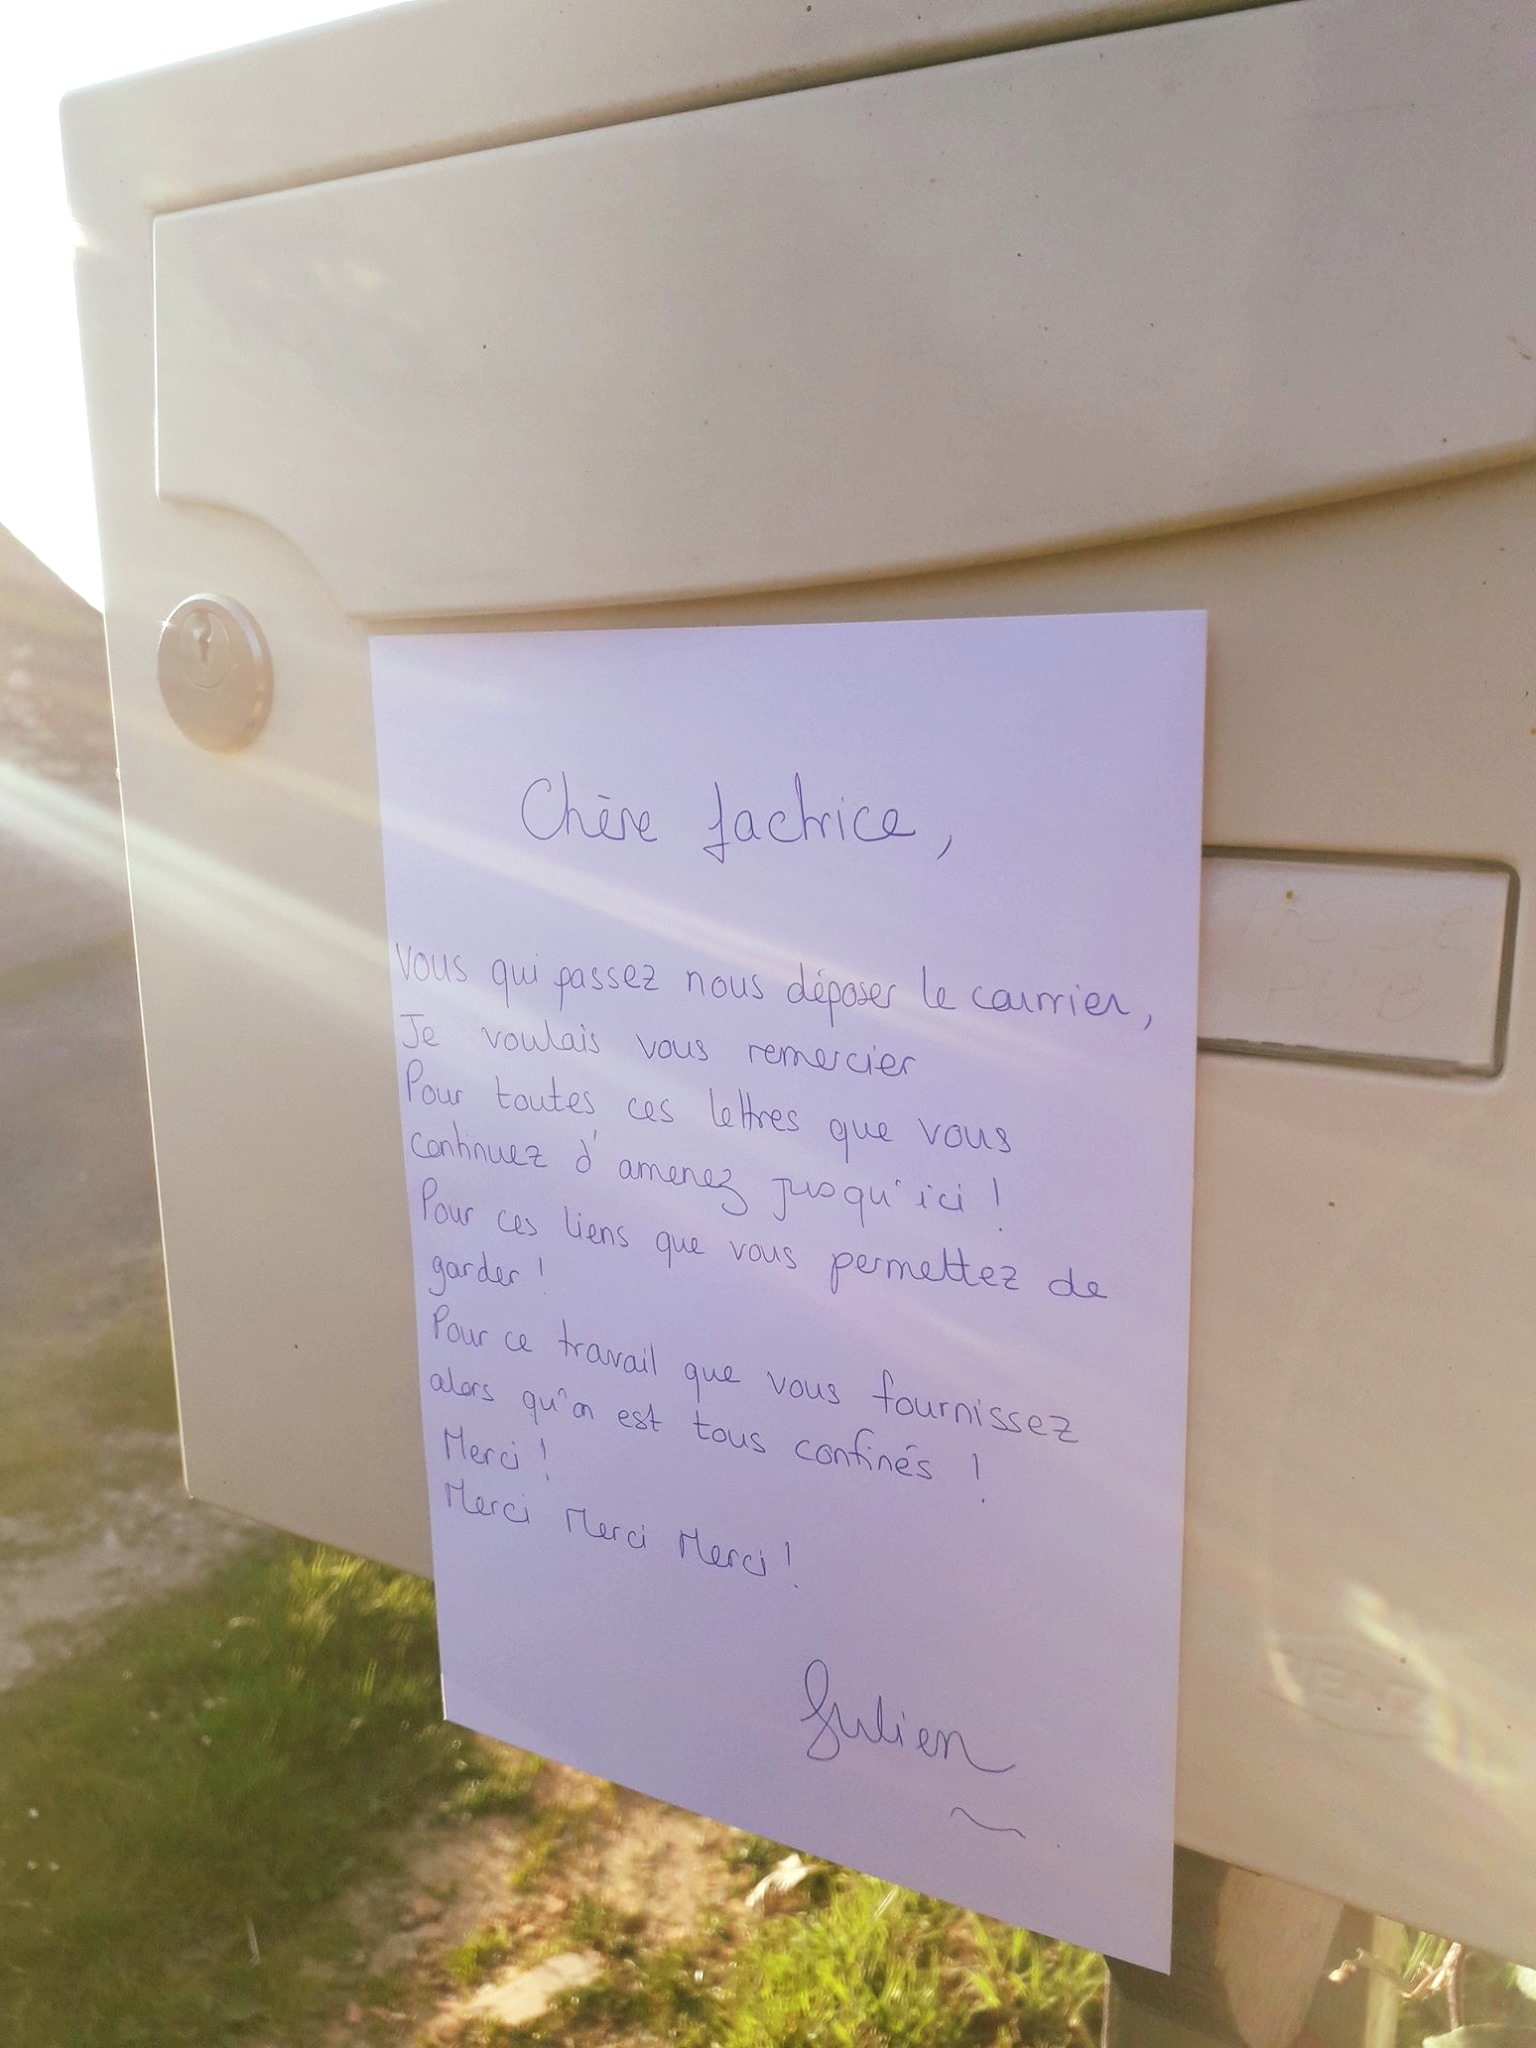 Chère factrice,
Vous qui passez nous déposer le courrier,
Je voulais vous remercier
Pour toutes ces lettres que vous
continuez d'amenez jusqu'ici !
Pour ces liens que vous permettez de
garder !
Pour ce travail que vous fournissez
alors qu'on est tous confinés !
Merci !
Merci Merci Merci !
Julien
PAS DE
PUB